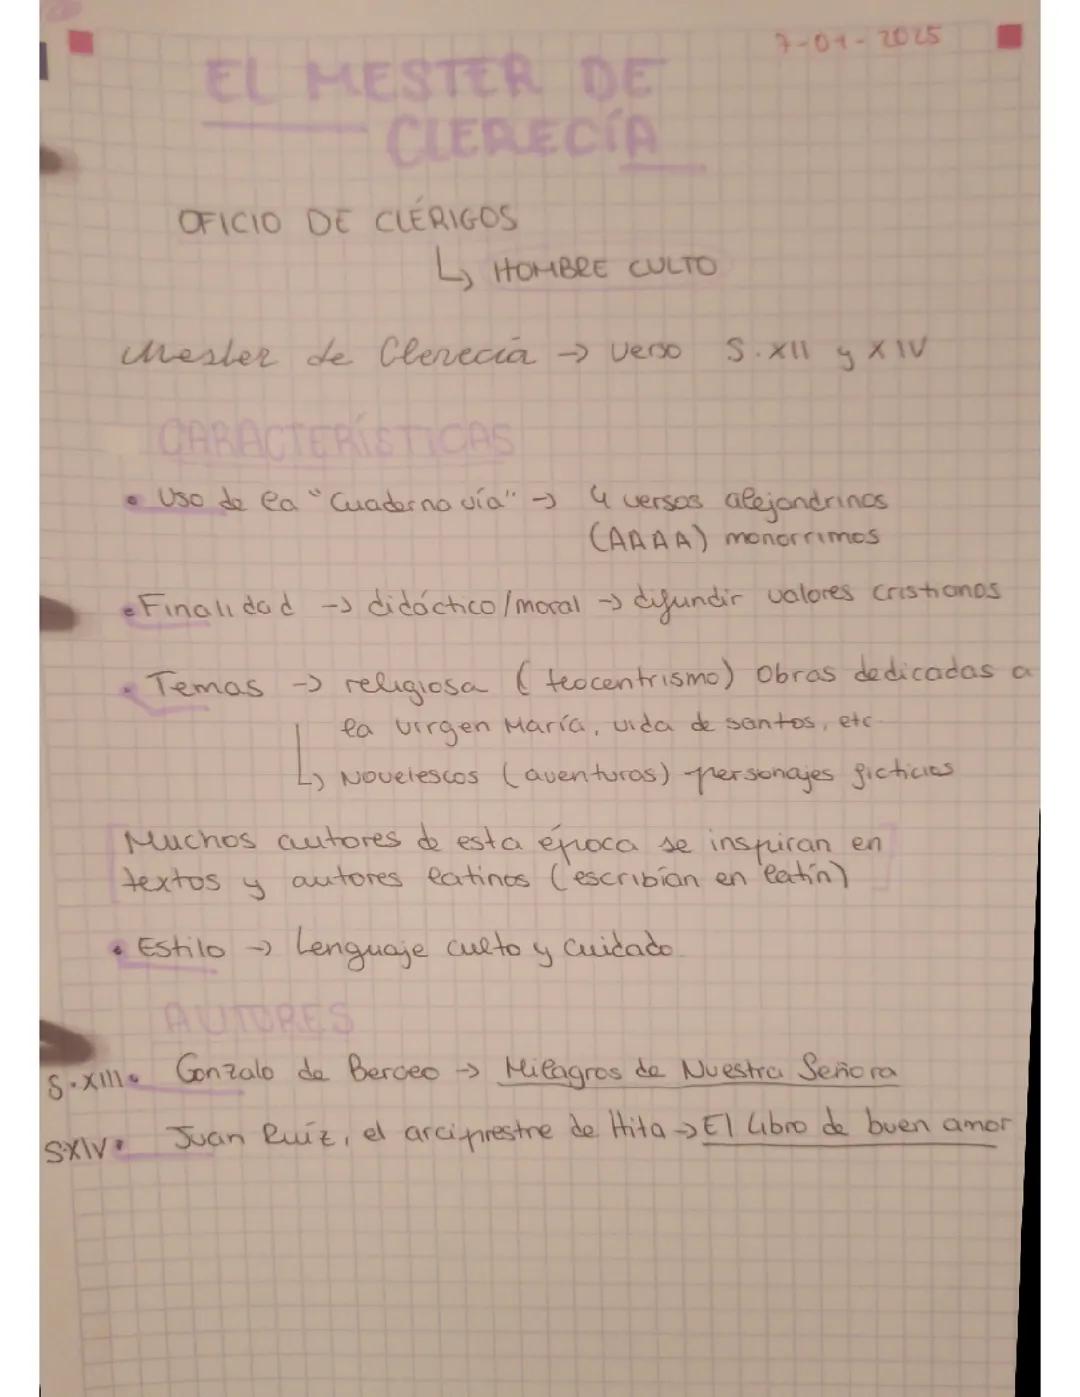 7-01-2025
EL MESTER DE
CLERECÍA
OFICIO DE CLÉRIGOS
↳ HOMBRE CULTO
Mester de Clerecía → verso S.XII y XIV
CARACTERÍSTICAS
• Uso de la "Cuaderna vía" → 4 versos alejandrinos
(AAAA) monorrimos
• Finalidad → didáctico/moral → difundir valores cristianos
• Temas → religiosa (teocentrismo) Obras dedicadas a
la virgen María, vida de santos, etc.
↳ Novelescos (aventuras) personajes ficticios
[Muchos autores de esta época se inspiran en
textos y autores latinos (escribían en latín)]
• Estilo → Lenguaje culto y cuidado.
AUTORES
S.XIII • Gonzalo de Berceo → Milagros de Nuestra Señora
S.XIV • Juan Ruíz, el arcipreste de Hita → El Libro de buen amor